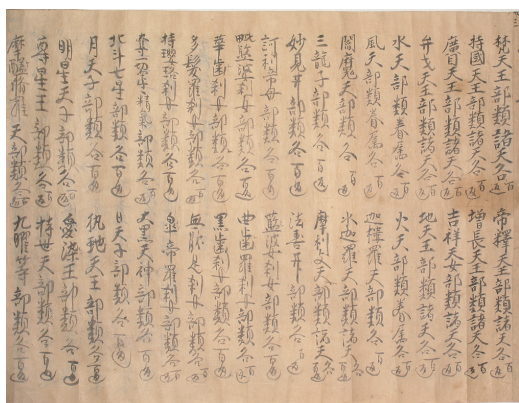 梵天王部類諸天各百返 帝釋天王部類諸天各百返
持國天王部類諸天各百返 增長天王部類諸天各百返
廣目天王部類諸天各百返 吉祥天女部類諸天各百返
弁才天王部類諸天各百返 地天王部類諸天各百返
水天部類眷属各百返 火天部類眷属各百返
風天部類眷属各百返 迦樓羅天部類各百返
閻魔天部類各百返 氷迦羅天部類諸天各百返
三龍子部類各百返 摩利支天部類諸天各百返
妙見井部類各百返 法善井部類各百返
訶利帝母部類各百返 藍波刹女部類各百返
毗藍波刹女部類各百返 曲歯羅刹女部類各百返
華歯羅刹女部類各百返 黒歯刹女部類各百返
多髮羅刹女部類各百返 無厭足刹女部類各百返
持瓔珞刹女部類各百返 皐帝羅刹女部類各百返
奪一切生精氣部類各百返 大黒天神部類各百返
北斗七星部類各百返 日天子部類各百返
月天子部類各百返 地天王部類各百返
明星天子部類各百返 愛染王部類各百返
尊星王部類各百返 持世天部類各百返
摩醯脩羅天部類各百返 九曜等部類各百返